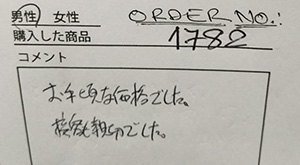 男性 女性 ORDER NO.:
購入した商品 1782
コメント
お手頃な価格でした。
接客も親切でした。